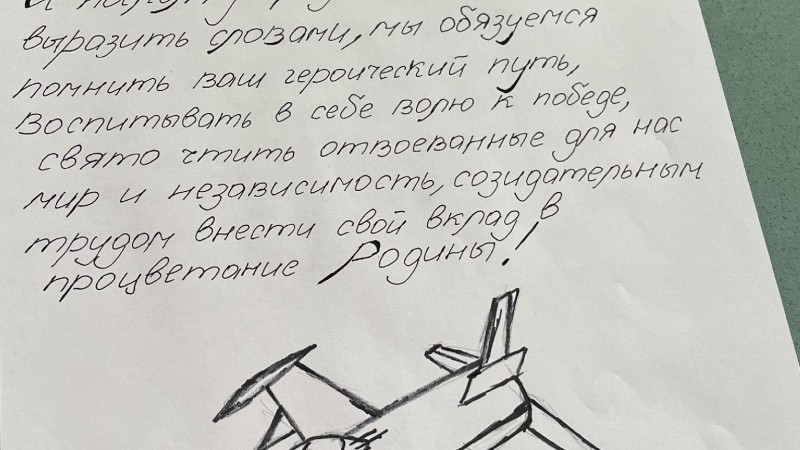 выразить словами, мы обязуемся
помнить ваш героический путь,
воспитывать в себе волю к победе,
свято чтить отвоеванные для нас
мир и независимость, созидательным
трудом внести свой вклад в
процветание Родины!